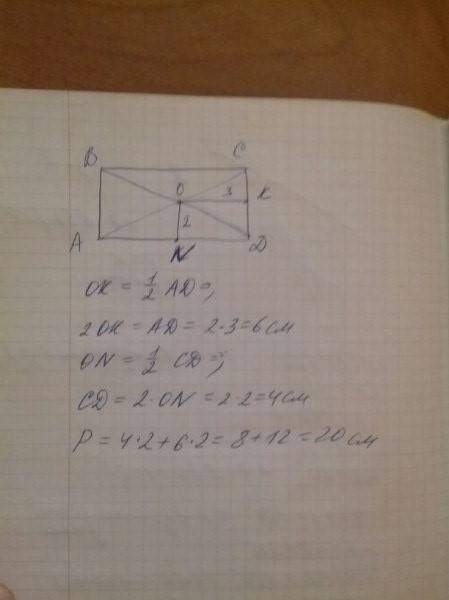 B C
O 3 K
2
A N D
OK = 1/2 AD =>
2OK = AD = 2·3 = 6 см
ON = 1/2 CD =>
CD = 2·ON = 2·2 = 4 см
P = 4·2 + 6·2 = 8 + 12 = 20 см